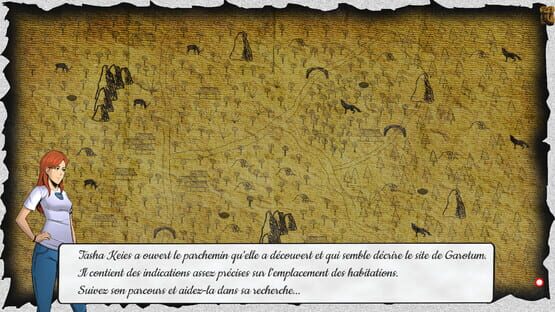 Tasha Keies a ouvert le parchemin qu'elle a découvert et qui semble décrire le site de Garotum.
Il contient des indications assez précises sur l'emplacement des habitations.
Suivez son parcours et aidez-la dans sa recherche...